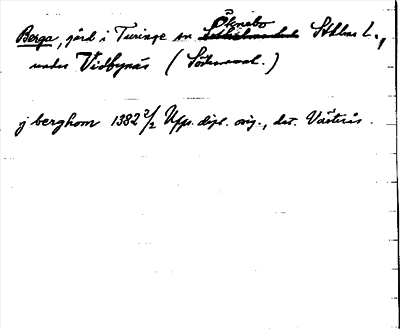 Öknebo
Berga, gård i Turinge sn Sthlms L.,
under Vidbynäs (Södermanl.)
j berghom 1382 2/2 Upps. dipl. orig., dat. Västerås.